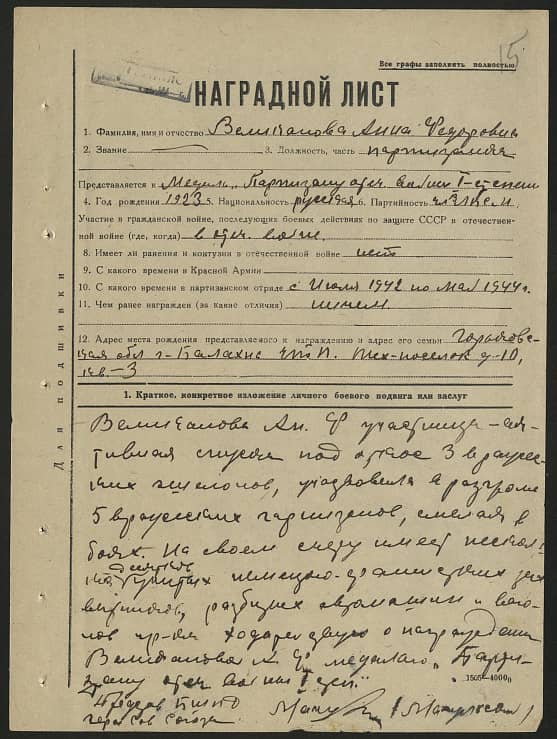 15
Все графы заполнять полностью
НАГРАДНОЙ ЛИСТ
1. Фамилия, имя и отчество Великанова Анна Федоровна
2. Звание — 3. Должность, часть партизанка
Представляется к Медаль „Партизану отеч. войны I степени
4. Год рождения 1923 5. Национальность русская 6. Партийность чл. ВЛКСМ
Участие в гражданской войне, последующих боевых действиях по защите СССР в отечествен-
ной войне (где, когда) в отеч. войне
8. Имеет ли ранения и контузии в отечественной войне нет
9. С какого времени в Красной Армии
10. С какого времени в партизанском отряде с Июля 1942 по май 1944 г.
11. Чем ранее награжден (за какие отличия) ничем
12. Адрес места рождения представляемого к награждению и адрес его семьи Горьковс-
кая обл г. Балахна поселок д-10,
кв-3
Для подшивки
1. Краткое, конкретное изложение личного боевого подвига или заслуг
Великанова Ан. Ф участница-ак-
тивная спуска под откос 3 вражес-
ких эшелонов, участвовала в разгроме
5 вражеских гарнизонов, смелая в
боях. На своем счету имеет несколько
десятков убитых немецко-фашистских зах-
ватчиков, разбитых автомашин и ваго-
нов пр-ка. Ходатайствую о награждении
Великанова А. Ф. медалью „Парти-
зану отеч войны I степ"
1505—4000
Героя Сов Союза